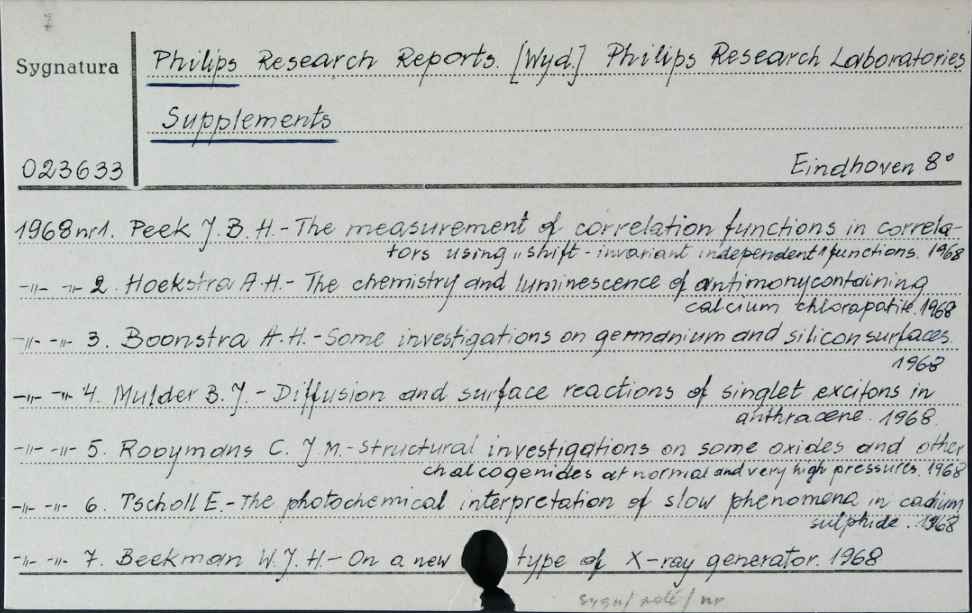 Sygnatura
Philips Research Reports. [Wyd.] Philips Research Laboratories
Supplements
023633
Eindhoven 8°
1968 nr 1. Peek J. B. H. - The measurement of correlation functions in correla-
tors using „shift - invariant independent" functions. 1968
-"- -"- 2. Hoekstra A. H. - The chemistry and luminescence of antimonycontaining
calcium chlorapatite. 1968
-"- -"- 3. Boonstra A. H. - Some investigations on germanium and silicon surfaces.
1968
-"- -"- 4. Mulder B. J. - Diffusion and surface reactions of singlet excitons in
anthracene. 1968.
-"- -"- 5. Rooymans C. J. M. - Structural investigations on some oxides and other
chalcogenides at normal and very high pressures. 1968
-"- -"- 6. Tscholl E. - The photochemical interpretation of slow phenomena in cadium
sulphide. 1968
-"- -"- 7. Beekman W. J. H. - On a new type of X-ray generator. 1968
sygn/ / nr